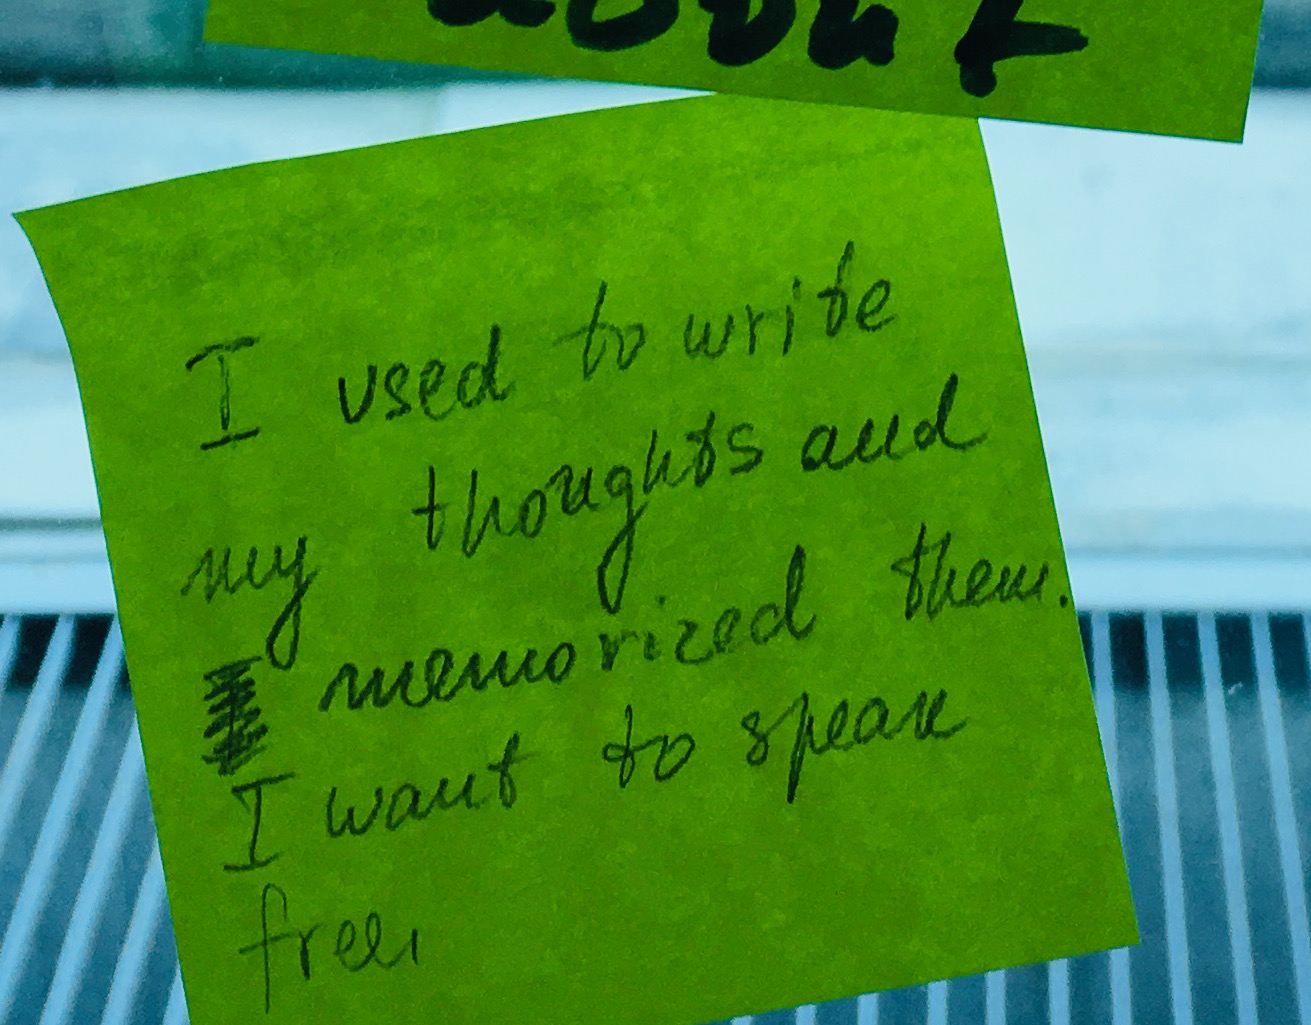 about
I used to write
my thoughts and
memorized them.
I want to speak
free.